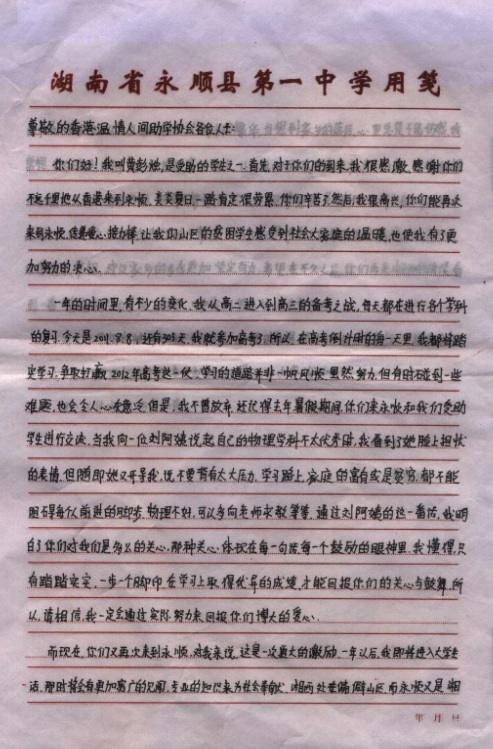 湖南省永顺县第一中学用笺
尊敬的香港温情人间助学协会各位人士:
你们好!我叫黄彭灿,是受助的学生之一。首先,对于你们的到来,我很感激,感谢你们
不远千里地从香港来到永顺,炎炎夏日,一路肯定很劳累,你们辛苦了。然后,我很高兴,你们能再次
来到永顺,传递爱心接力棒,让我们山区的贫困学生感受到社会大家庭的温暖,也使我有了更
加努力的决心。
一年的时间里,有不少的变化,我从高二进入到高三的备考之战,每天都在进行各个学科
的复习,今天是2011.8.8,还有303天,我就参加高考了,所以,在高考倒计时的每一天里,我都将踏
实学习,争取打赢2012年高考这一仗,学习的道路并非一帆风顺,虽然努力,但有时碰到一些
难题,也会令人心灰意乏,但是,我不曾放弃,还记得去年暑假期间,你们来永顺和我们受助
学生进行交流,当我向一位刘阿姨说起自己的物理学科不太优秀时,我看到了她脸上担忧
的表情,但随即她又开导我,说不要背有太大压力,学习路上,家庭的富有或是贫穷,都不能
阻碍每个人前进的脚步,物理不好,可以多向老师求教等等,通过刘阿姨的这一番话,我明
白了你们对我们是多么的关心,那种关心,体现在每一句话,每一个鼓励的眼神里,我懂得,只
有踏踏实实,一步一个脚印,在学习上取得优异的成绩,才能回报你们的关心与鼓舞,所
以,请相信,我一定会通过实际努力来回报你们博大的爱心。
而现在,你们又再次来到永顺,对我来说,这是一次莫大的激励,一年以后,我即将进入大学生
活,那时将会有更加宽广的见闻,专业的知识来为社会奉献,湘西处于偏僻山区,而永顺又是湘
年 月 日